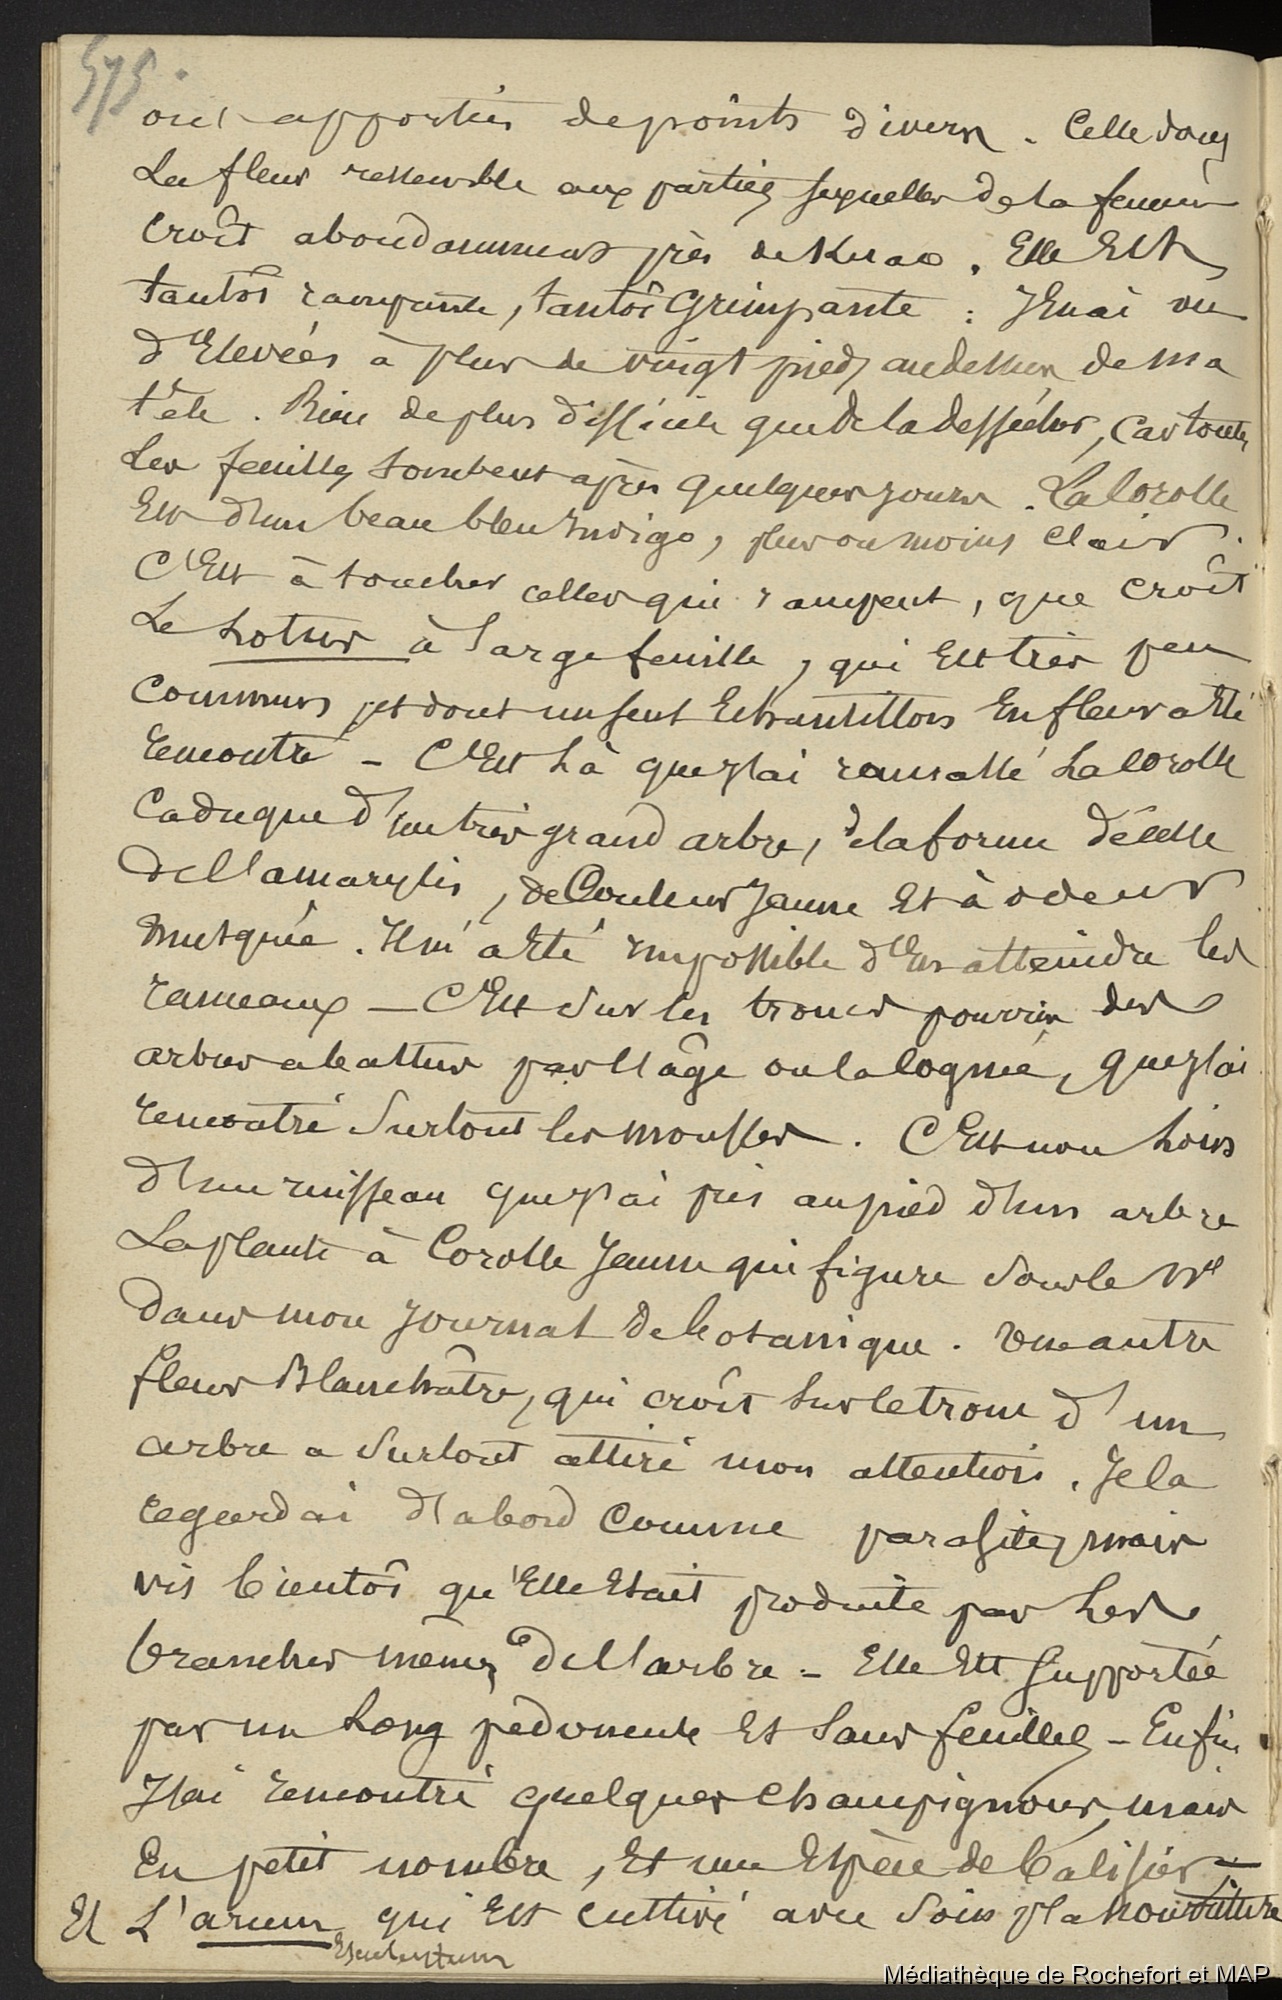 575.
ont apportées de points divers. Celle dont
La fleur ressemble aux parties sexuelles de la femme
Croît abondamment près de . Elle Est
tantôt rampante, tantôt Grimpante : J'En ai vu
d'Elevées à plus de vingt pieds au dessus de ma
tête. Rien de plus difficile que de la dessécher, Car toutes
Les feuilles tombent après quelques jours. La Corolle
Est d'un beau bleu Indigo, plus ou moins clair.
C'Est à toucher celles qui rampent, que croît
Le Lotus à large feuille, qui Est très peu
Commun, et dont un seul Echantillon En fleur a Eté
rencontré - C'Est Là que J'ai ramassé La Corolle
Caduque d'un très grand arbre, de la forme de celle
de l'amarylis, de Couleur Jaune Et à odeur
musquée. Il m'a Eté Impossible d'En atteindre les
rameaux - C'Est sur les troncs pourris des
arbres abattus par l'âge ou la cognée, que J'ai
rencontré surtout les mousses. C'Est non Loin
d'un ruisseau que J'ai pris au pied d'un arbre
La plante à Corolle Jaune qui figure sous le N°
dans mon Journal de botanique. Une autre
fleur Blanchâtre, qui croît sur le tronc d'un
arbre a surtout attiré mon attention. Je la
regardai d'abord Comme parasite, mais
vis bientôt qu'Elle Etait produite par Les
branches mêmes de l'arbre - Elle Est supportée
par un Long pédoncule Et sans feuilles - Enfin
J'ai rencontré quelques champignons, mais
En petit nombre, Et une Espèce de balisier -
Et L'arum Esculentum qui Est cultivé avec soin pr la nourriture
Médiathèque de Rochefort et MAP